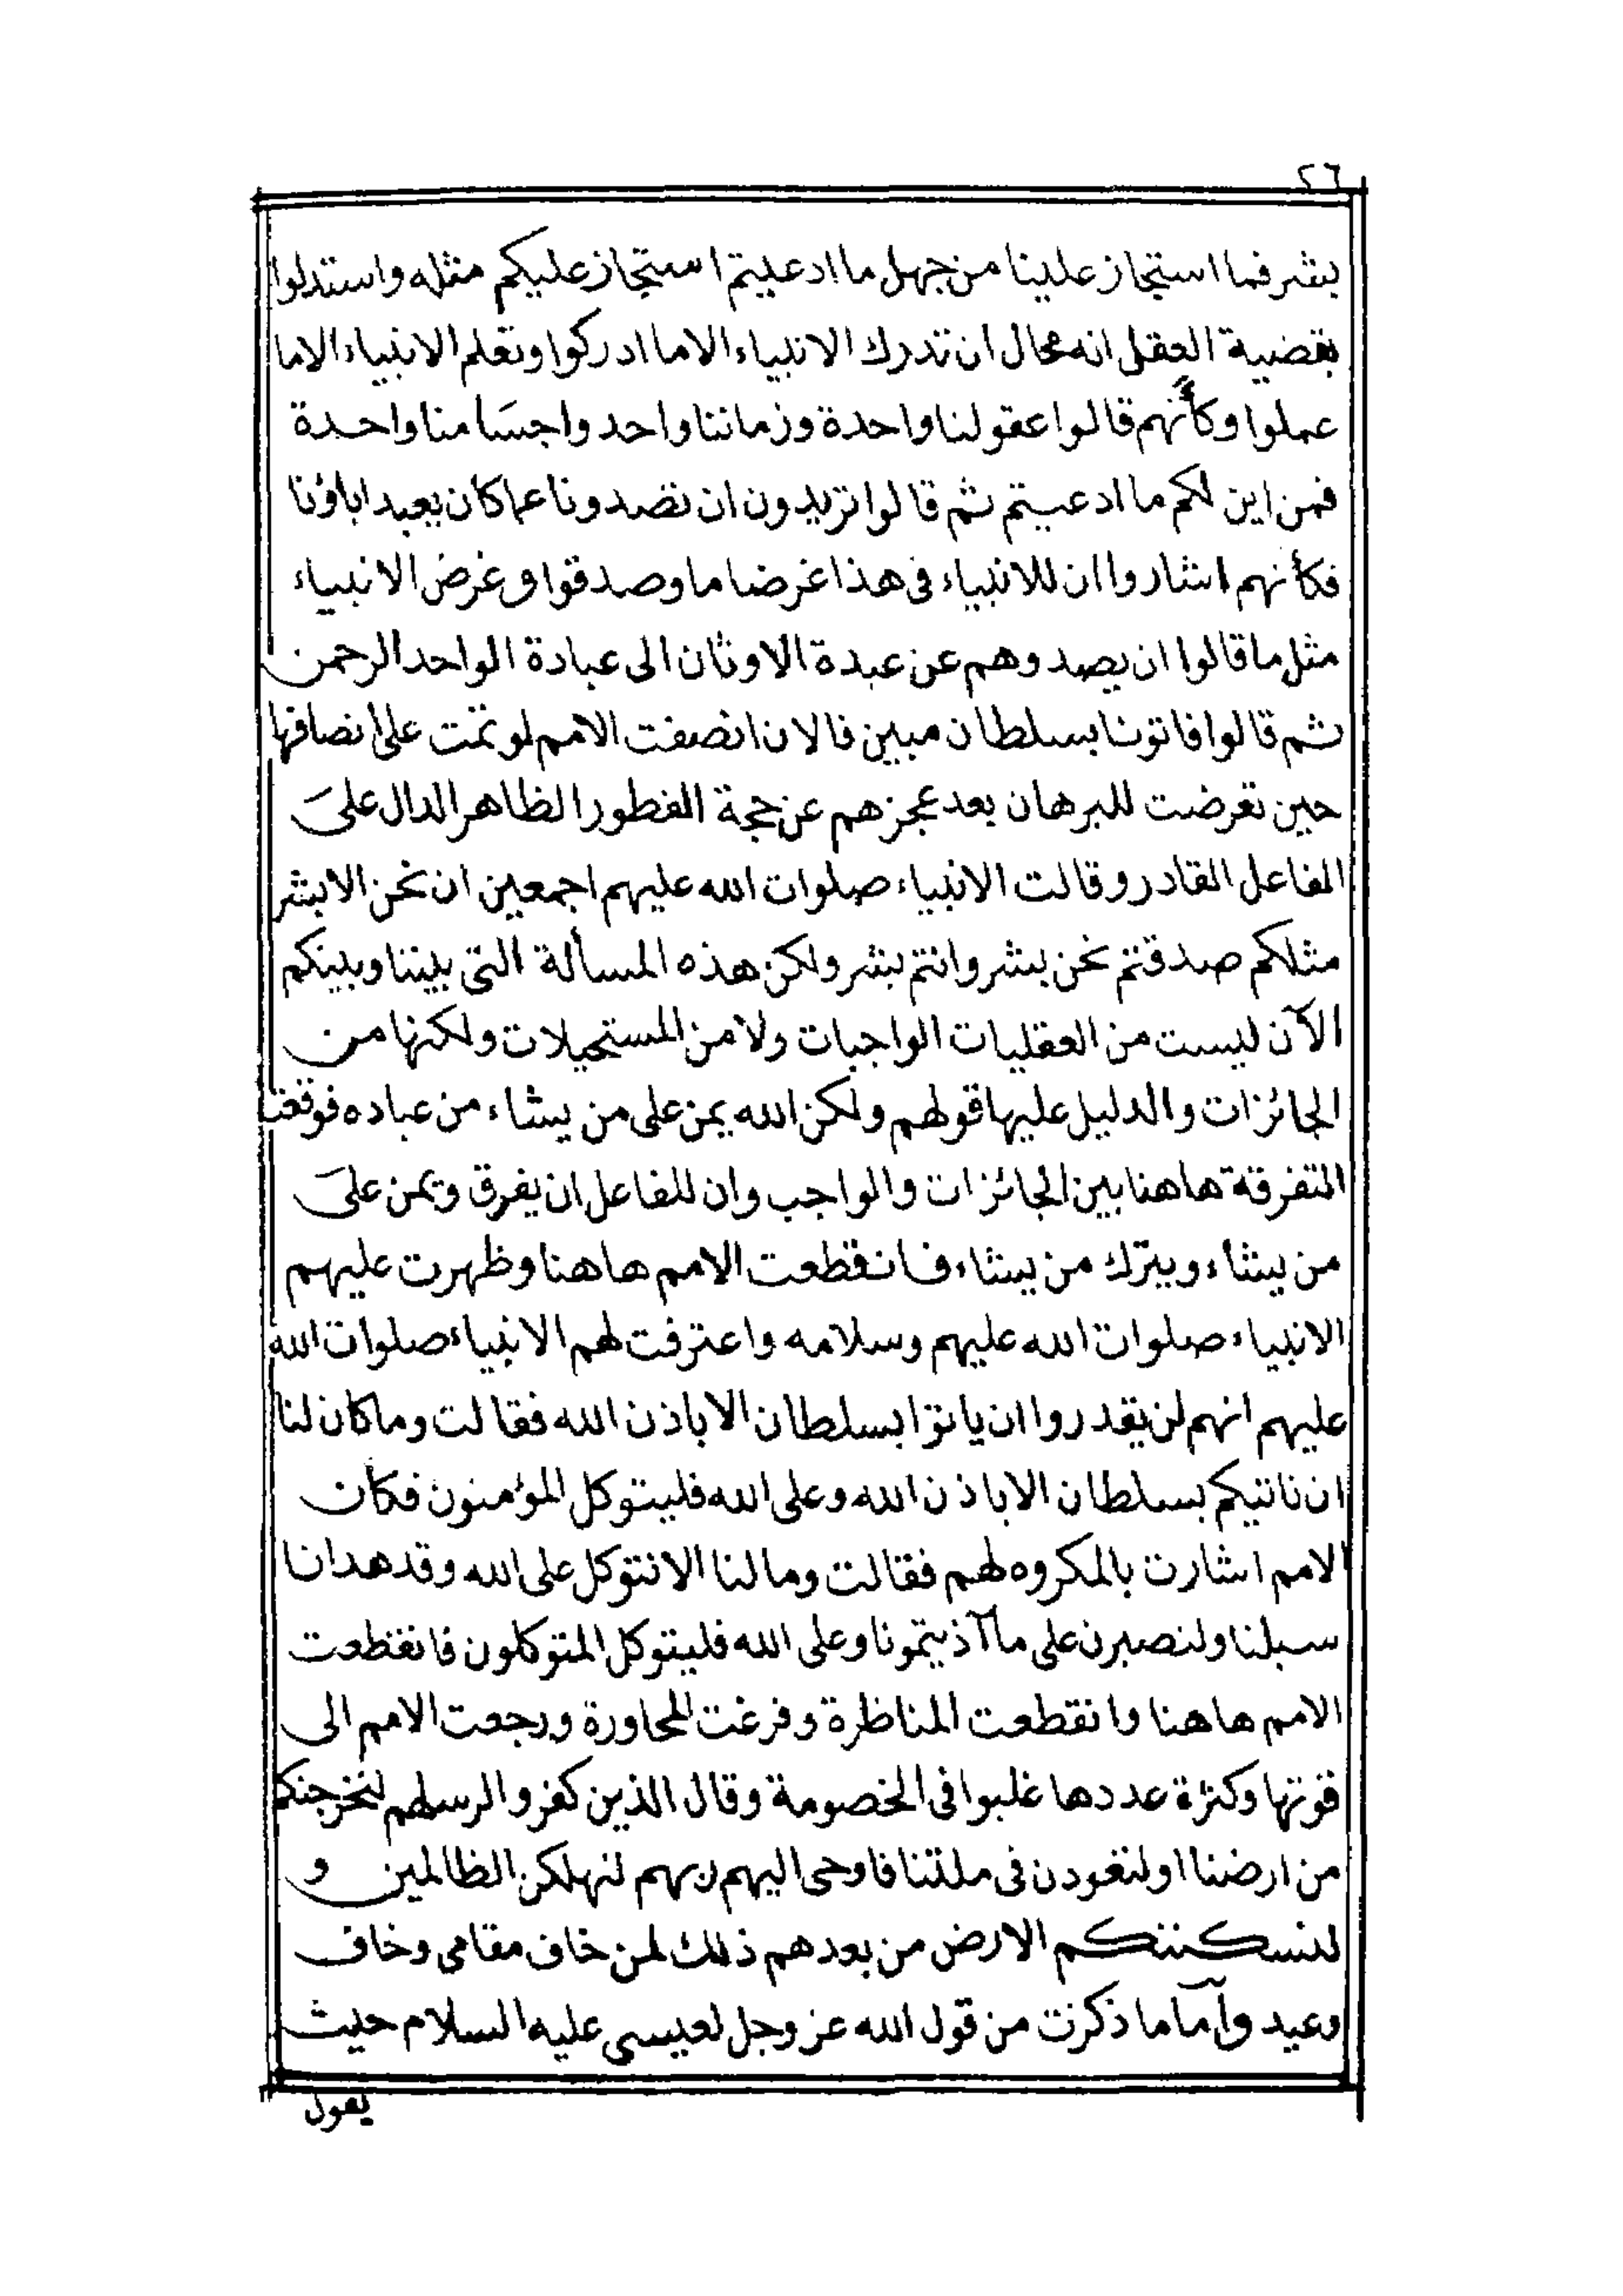 ٢٦
بشر فما استجاز علينا من جهل ما ادعيتم استجاز عليكم مثله واستدلوا
بقضية العقل انه محال ان تدرك الانبياء الا ما ادركوا وتعلم الانبياء الا ما
عملوا وكأنهم قالوا عقولنا واحدة وزماننا واحد واجسَامنا واحدة
فمن اين لكم ما ادعيتم ثم قالوا تريدون ان تصدونا عما كان يعبد اباؤنا
فكأنهم اشاروا ان للانبياء فى هذا غرضا ما وصدقوا وغرض الانبياء
مثل ما قالوا ان يصدوهم عن عبدة الاوثان الى عبادة الواحد الرحمن
ثم قالوا فاتونا بسلطان مبين فالان انصفت الامم لو تمت على انصافها
حين تعرضت للبرهان بعد عجزهم عن حجة الفطور الظاهر الدال علىَ
الفاعل القادر وقالت الانبياء صلوات الله عليهم اجمعين ان نحن الا بشر
مثلكم صدقتم نحن بشر وانتم بشر ولكن هذه المسألة التى بيننا وبينكم
الآن ليست من العقليات الواجبات ولا من المستحيلات ولكنها من
الجائزات والدليل عليها قولهم ولكن الله يمن على من يشاء من عباده فوقعت
التفرقة هاهنا بين الجائزات والواجب وان للفاعل ان يفرق ويمن علىَ
من يشاء ويترك من يشاء فانقطعت الامم هاهنا وظهرت عليهم
الانبياء صلوات الله عليهم وسلامه واعترفت لهم الانبياء صلوات الله
عليهم انهم لن يقدروا ان ياتوا بسلطان الا باذن الله فقالت وما كان لنا
ان ناتيكم بسلطان الا باذن الله وعلى الله فليتوكل المؤمنون فكأن
الامم اشارت بالمكروه لهم فقالت وما لنا الا نتوكل على الله وقد هدانا
سبلنا ولنصبرن على ما آذيتمونا وعلى الله فليتوكل المتوكلون فانقطعت
الامم هاهنا وانقطعت المناظرة وفرغت المحاورة ورجعت الامم الى
قوتها وكثرة عددها غلبوا فى الخصومة وقال الذين كفروا لرسلهم لنخرجنكم
من ارضنا او لتعودن فى ملتنا فاوحى اليهم ربهم لنهلكن الظالمين و
لنسكننكم الارض من بعدهم ذلك لمن خاف مقامى وخاف
وعيد وأما ما ذكرت من قول الله عز وجل لعيسى عليه السلام حيث
يقول